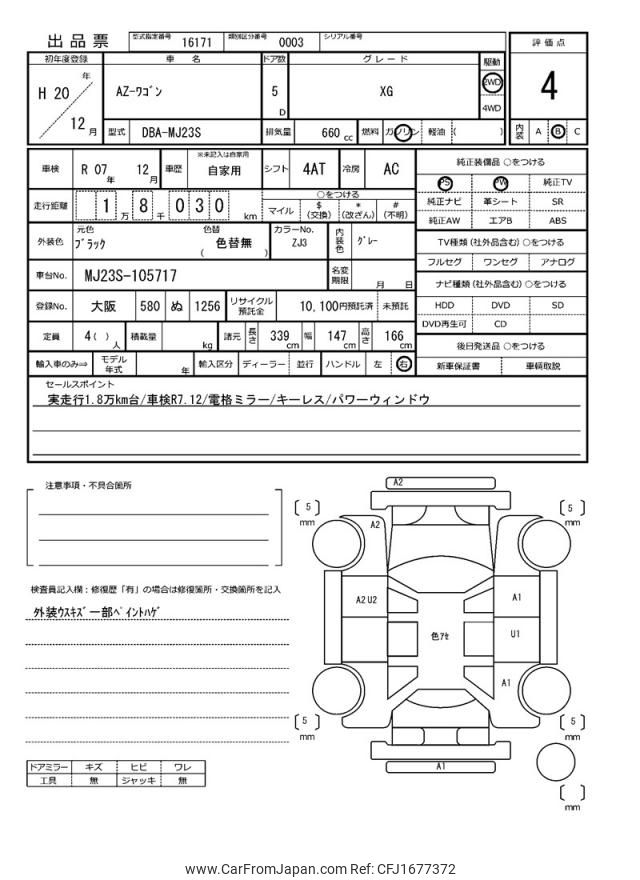 出品票 型式指定番号 16171 類別区分番号 0003 シリアル番号
評価点
4
内装 A B C
初年度登録 車名 ドア数 グレード 駆動
H 20 年 12 月 AZ-ワゴン 5 D XG 2WD 4WD
型式 DBA-MJ23S 排気量 660 cc 燃料 ガソリン 軽油 ( )
車検 R 07 年 12 月 車歴 ※未記入は自家用 自家用 シフト 4AT 冷房 AC
走行距離 1 万 8 千 0 3 0 km
○をつける
マイル $ (交換) * (改ざん) # (不明)
外装色 元色 ブラック 色替 ( 色替無 ) カラーNo. ZJ3 内装色 グレー
車台No. MJ23S-105717 名変期限 月 日
登録No. 大阪 580 ぬ 1256 リサイクル預託金 10,100円預託済 未預託
定員 4( ) 人 積載量 kg 諸元 長さ 339 cm 幅 147 cm 高さ 166 cm
輸入車のみ⇒ モデル年式 年 輸入区分 ディーラー 並行 ハンドル 左 右
純正装備品 ○をつける
PS PW 純正TV
純正ナビ 革シート SR
純正AW エアB ABS
TV種類 (社外品含む) ○をつける
フルセグ ワンセグ アナログ
ナビ種類 (社外品含む) ○をつける
HDD DVD SD
DVD再生可 CD
後日発送品 ○をつける
新車保証書 車輌取説
セールスポイント
実走行1.8万km台/車検R7.12/電格ミラー/キーレス/パワーウィンドウ
注意事項・不具合箇所
検査員記入欄:修復歴「有」の場合は修復箇所・交換箇所を記入
外装ウスキズ一部ペイントハゲ
ドアミラー キズ ヒビ ワレ
工具 無 ジャッキ 無
A2
5 mm
5 mm
A2
A2 U2
A1
色アセ
U1
A1
5 mm
5 mm
A1
mm
www.CarFromJapan.com Ref: CFJ1677372